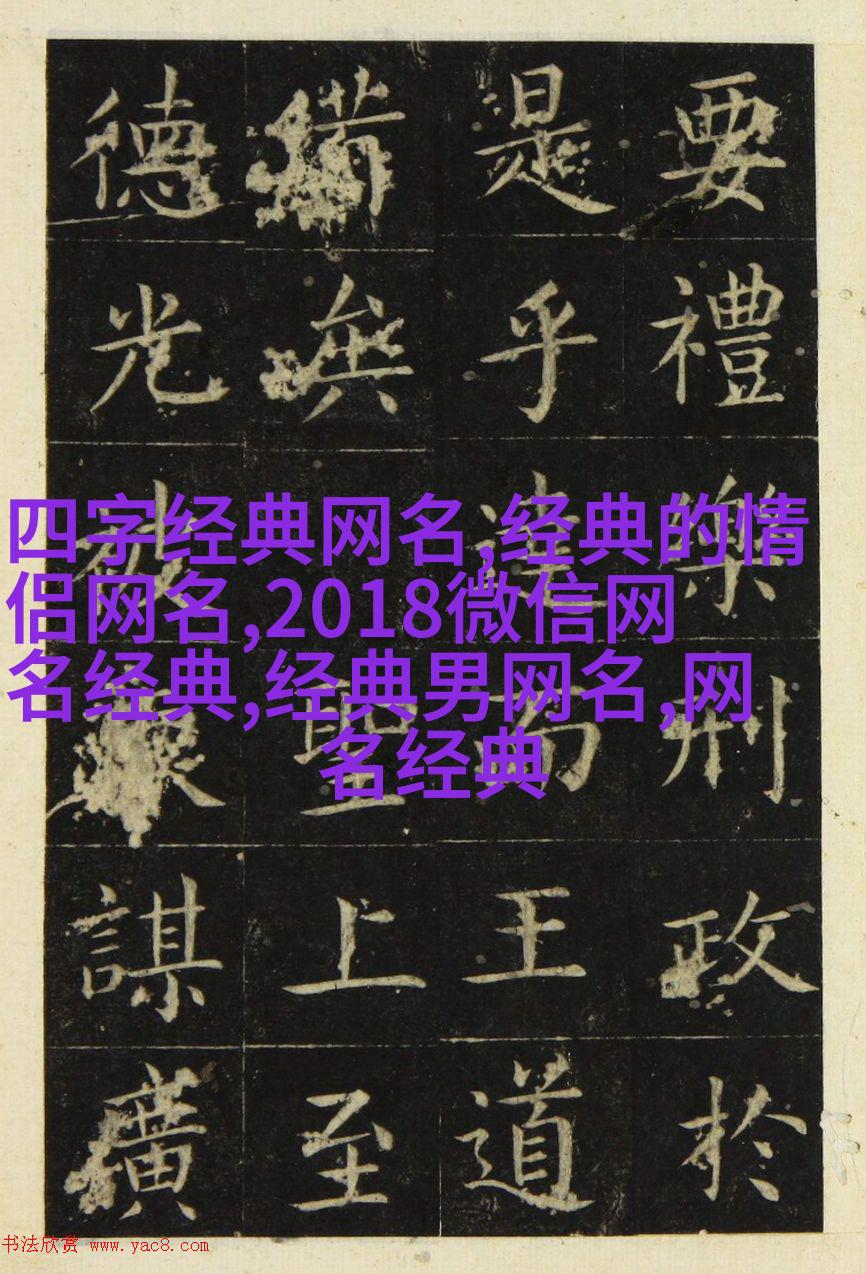 四字经典网名,经典的情
侣网名,2018微信网
名经典,经典男网名,网
名经典
要禮樂刑政於
是乎達而王道
備聖上至
德光謀廣
书法欣赏 www.yac8.com